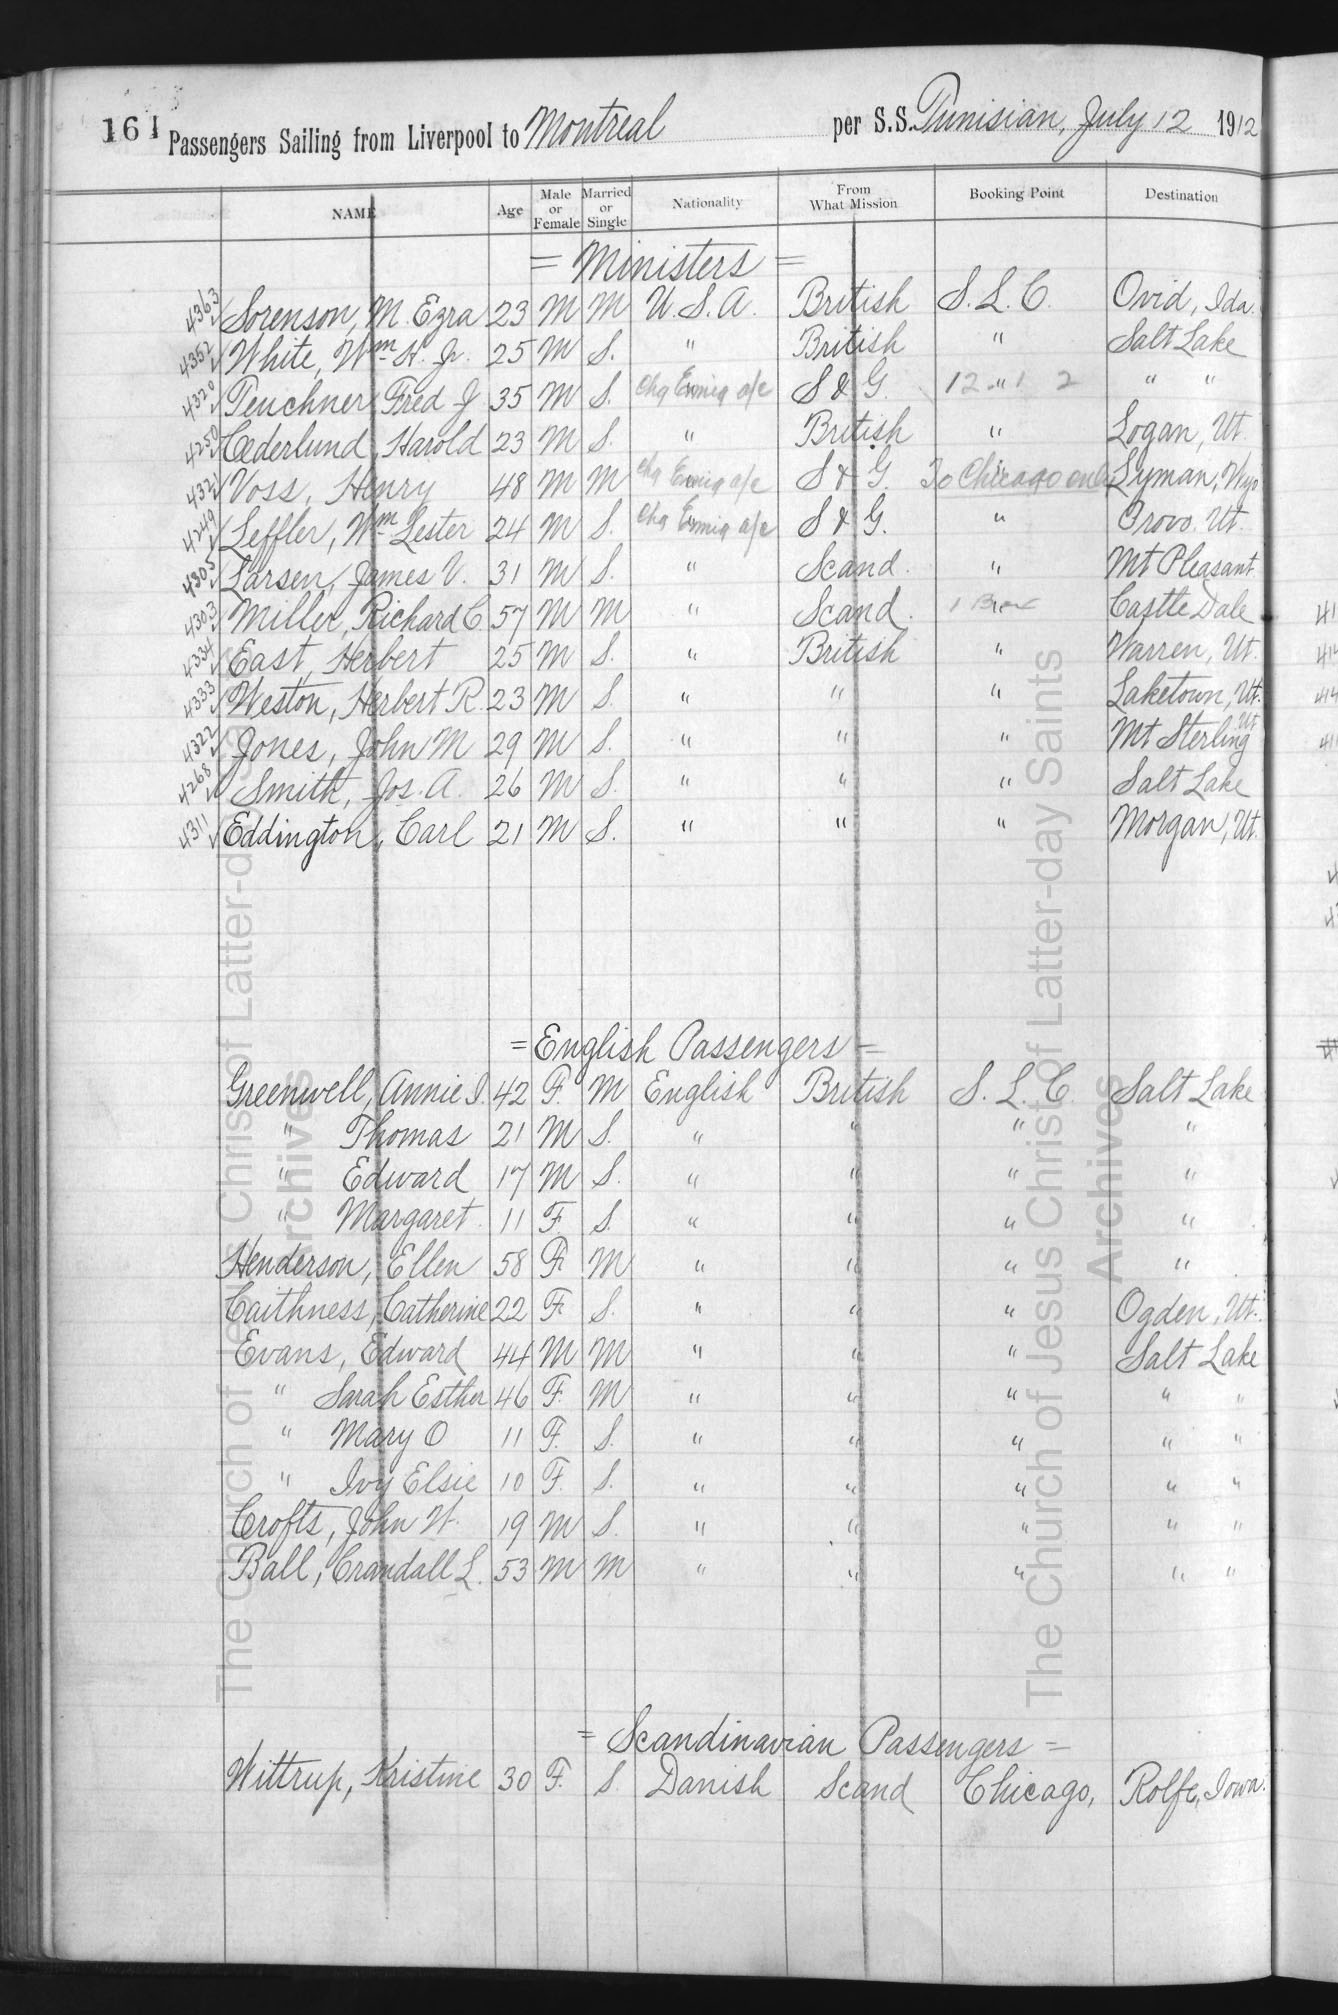 161 Passengers Sailing from Liverpool to Montreal per S.S. Tunisian, July 12 1912
NAME Age Male or Female Married or Single Nationality From What Mission Booking Point Destination
= Ministers =
4363 Sorenson, M. Ezra 23 M M U.S.A. British S.L.C. Ovid, Ida.
4352 White, Wm H. Jr. 25 M S. " British " Salt Lake
4320 Teuchner Fred J 35 M S. Chg Emig a/c S & G. 12 " 1 2 " "
4250 Cederlund, Harold 23 M S. " British " Logan, Ut.
432 Voss, Henry 48 M M Chg Emig a/c S & G. To Chicago only Lyman, Wyo
4249 Leffler, Wm Lester 24 M S. Chg Emig a/c S & G. " Provo. Ut.
4305 Larsen, James V. 31 M S. " Scand. " Mt Pleasant
4303 Miller, Richard C. 57 M M " Scand. 1 Castle Dale
4334 East, Herbert 25 M S. " British " Warren, Ut.
4333 Weston, Herbert R. 23 M S. " " " Laketown, Ut.
4322 Jones, John M 29 M S. " " " Mt Sterling Ut
4268 Smith, Jos. A. 26 M S. " " " Salt Lake
4311 Eddington, Carl 21 M S. " " " Morgan, Ut.
= English Passengers =
Greenwell, Annie I. 42 F. M English British S.L.C. Salt Lake
" Thomas 21 M S. " " " "
" Edward 17 M S. " " " "
" Margaret. 11 F. S. " " " "
Henderson, Ellen 58 F. M " " " "
Caithness, Catherine 22 F. S. " " " Ogden, Ut.
Evans, Edward 44 M M " " " Salt Lake
" Sarah Esther 46 F. M " " " " "
" Mary O 11 F. S. " " " " "
" Ivy Elsie 10 F. S. " " " " "
Crofts, John W. 19 M S. " " " " "
Ball, Crandall L. 53 M M " " " " "
= Scandinavian Passengers =
Wittrup, Kristine 30 F. S. Danish Scand Chicago, Rolfe, Iowa.
The Church of Jesus Christ of Latter-day Saints
Archives
The Church of Jesus Christ of Latter-day Saints
Archives